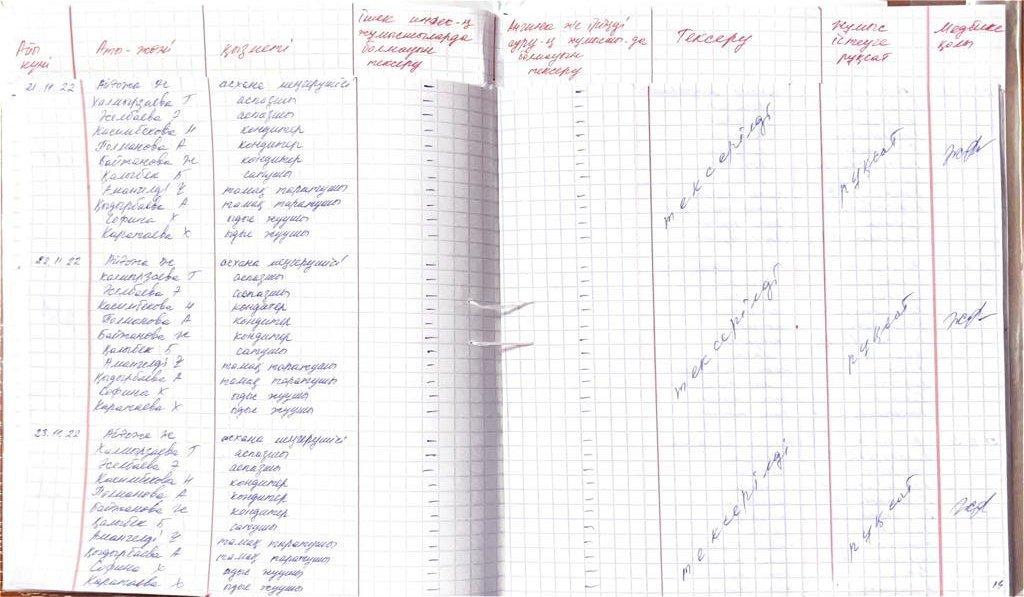 Айы күні
Аты-жөні
қызметі
Ішек инфек-ң жұмысшыларда болмауын тексеру
Ангина және іріңді ауру-ң жұмысш-да болмауын тексеру
Тексеру
жұмыс істеуге рұқсат
Медбике қолы
21.11.22 Айтжа Ж асхана меңгерушісі
Халмырзаева Т аспазшы
Желбаева Э аспазшы
Касимбекова Н кондитер
Полманова А кондитер
Байжанова Ж кондитер
Қалыбек Б сатушы
Амангелді Ұ тамақ таратушы
Қыдырбаева А тамақ таратушы
Софина Х ыдыс жуушы
Каратаева Х ыдыс жуушы
тексерілді рұқсат
22.11.22 Айтжа Ж асхана меңгерушісі
Халмырзаева Т аспазшы
Желбаева Э аспазшы
Касимбекова Н кондитер
Полманова А кондитер
Байжанова Ж кондитер
Қалыбек Б сатушы
Амангелді Ұ тамақ таратушы
Қыдырбаева А тамақ таратушы
Софина Х ыдыс жуушы
Каратаева Х ыдыс жуушы
тексерілді рұқсат
23.11.22 Айтжа Ж асхана меңгерушісі
Халмырзаева Т аспазшы
Желбаева Э аспазшы
Касимбекова Н кондитер
Полманова А кондитер
Байжанова Ж кондитер
Қалыбек Б сатушы
Амангелді Ұ тамақ таратушы
Қыдырбаева А тамақ таратушы
Софина Х ыдыс жуушы
Каратаева Х ыдыс жуушы
тексерілді рұқсат